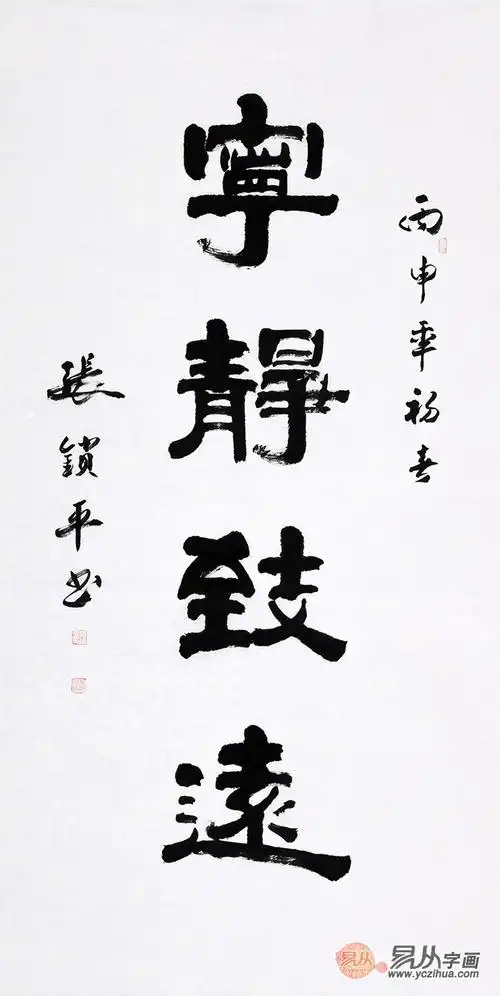 丙申年初春
寧靜致遠
張鎖平书
易从
易从字画
www.yczihua.com